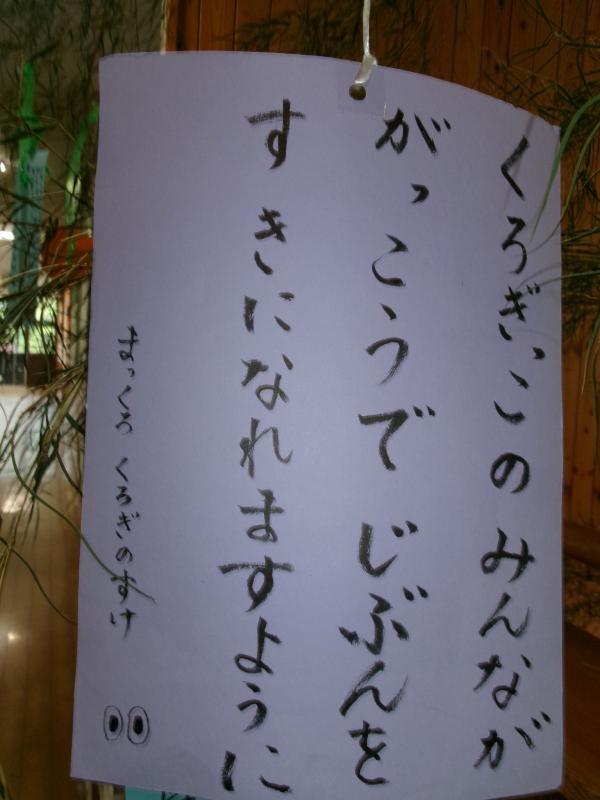 くろぎっこの みんなが
がっこうで じぶんを
すきになれますように
まっくろ くろぎのすけ